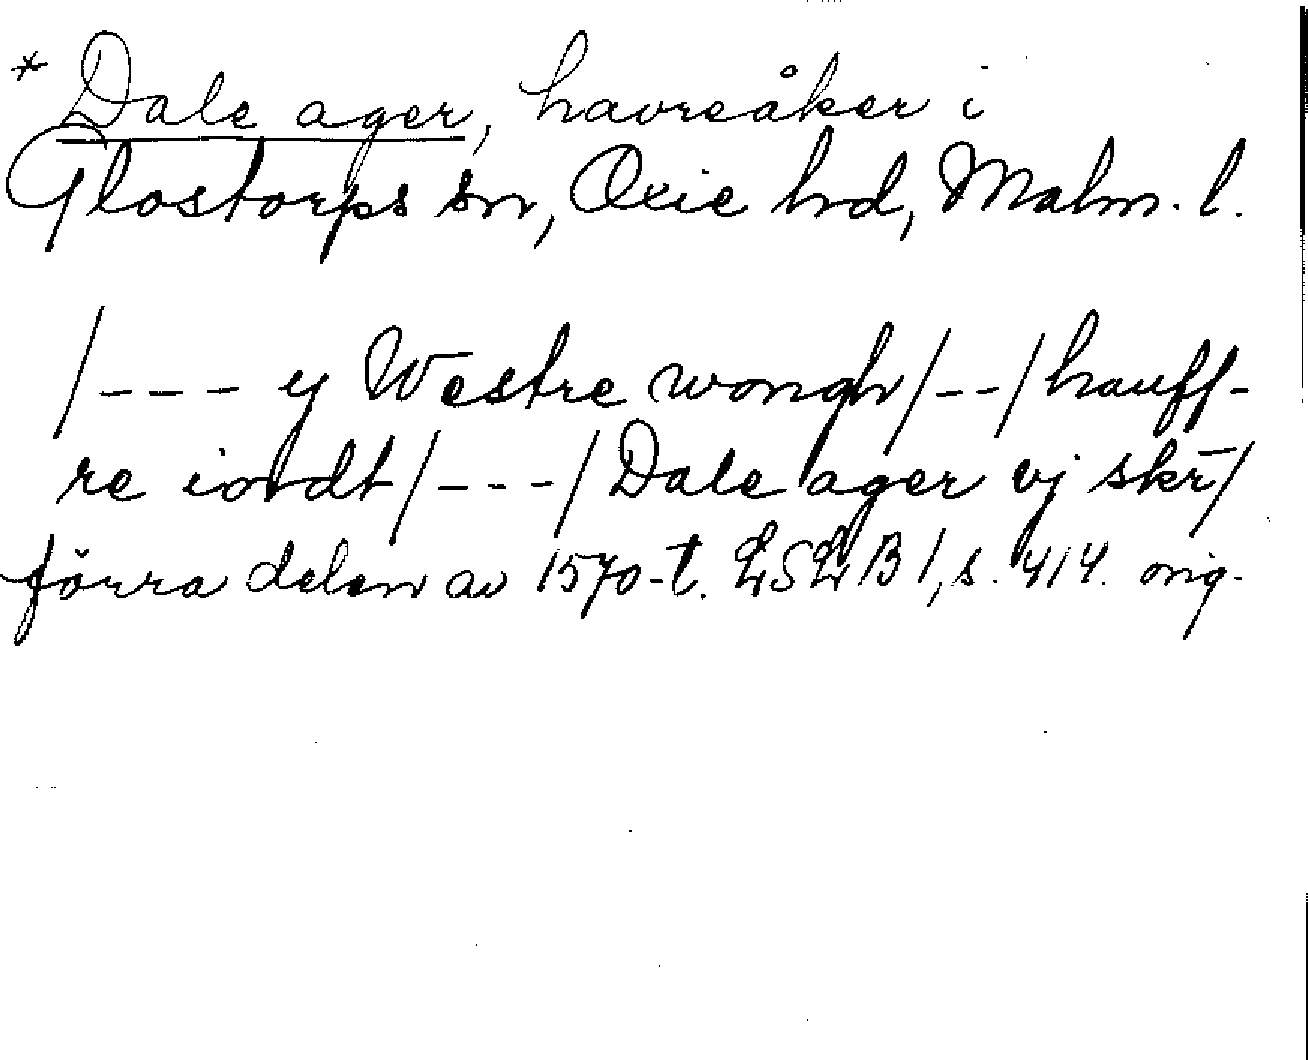 * Dale ager, havreåker i
Glostorps sn, Oxie hd, Malm. l.
/--- y Westre wongh/--/hauff-
re iordt/---/Dale ager vj skr̄/
förra delen av 1570-t. LSLB 1, s. 414. orig.